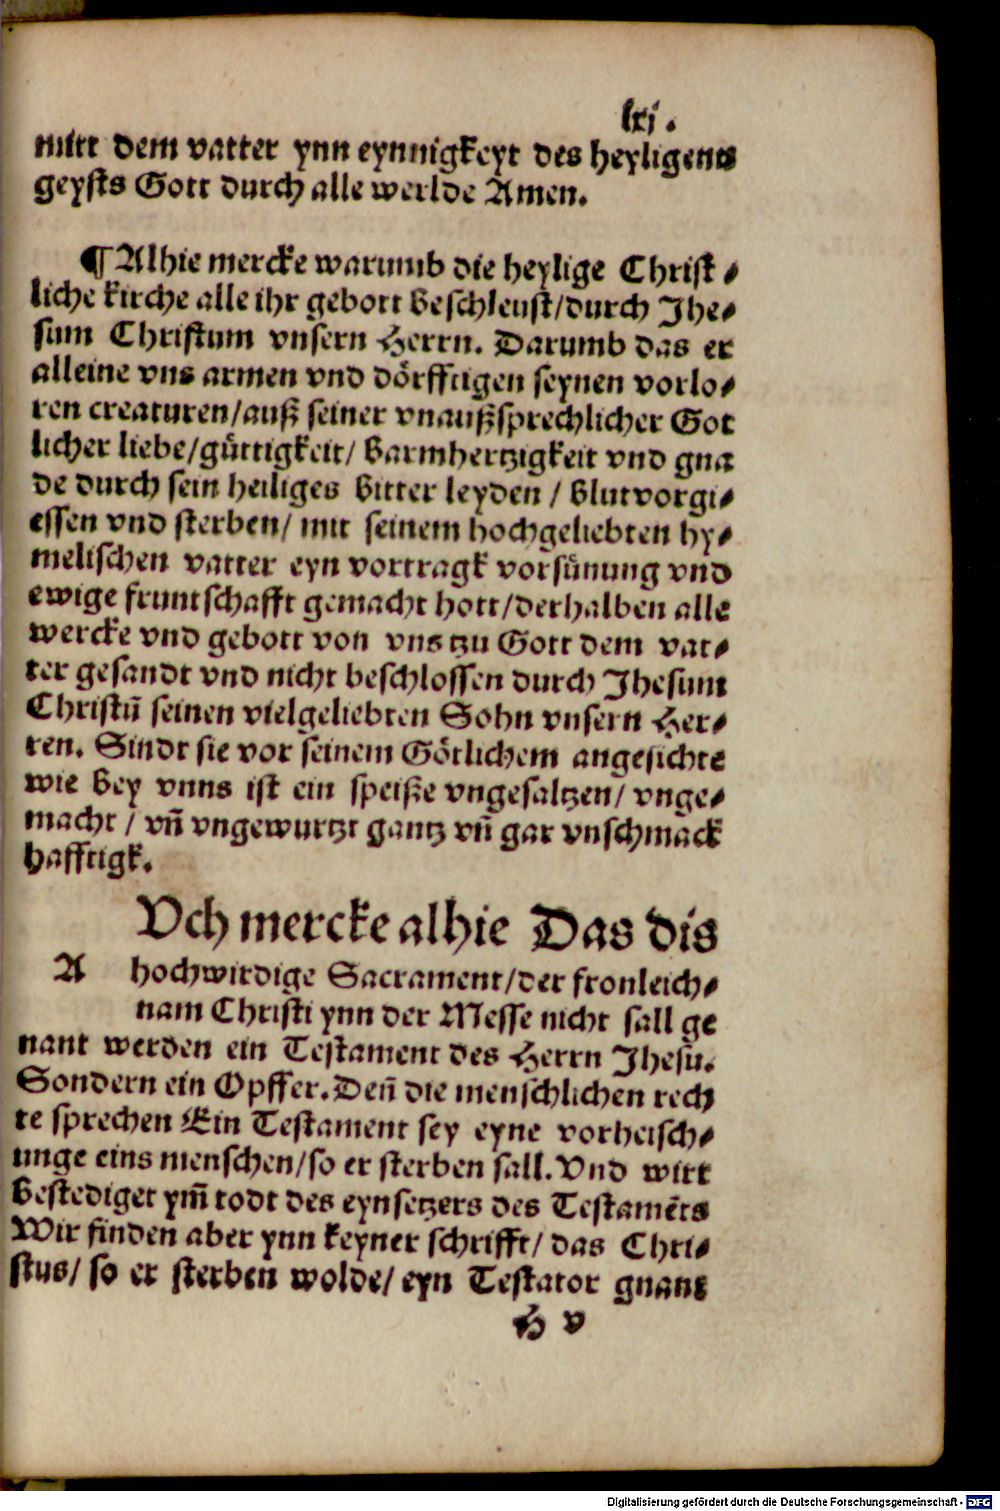 lxj.
mitt dem vatter ynn eynnigkeyt des heyligenns
geysts Gott durch alle werlde Amen.
¶ Alhie mercke warumb die heylige Christ⸗
liche kirche alle ihr gebott beschleust/durch Jhe⸗
sum Christum vnsern Herrn. Darumb das er
alleine vns armen vnd dörfftigen seynen vorlo⸗
ren creaturen/auß seiner vnaußsprechlicher Got
licher liebe/güttigkeit/ barmhertzigkeit vnd gna
de durch sein heiliges bitter leyden / blutvorgi⸗
essen vnd sterben/ mit seinem hochgeliebten hy⸗
melischen vatter eyn vortragk vorsünung vnd
ewige fruntschafft gemacht hott/derhalben alle
wercke vnd gebott von vns tzu Gott dem vat⸗
ter gesandt vnd nicht beschlossen durch Jhesum
Christū seinen vielgeliebten Sohn vnsern Her⸗
ren. Sindt sie vor seinem Götlichem angesichte
wie bey vnns ist ein speiße vngesaltzen/ vnge⸗
macht / vn̄ vngewurtzt gantz vn̄ gar vnschmack
hafftigk.
Vch mercke alhie Das dis
A hochwirdige Sacrament/der fronleich⸗
nam Christi ynn der Messe nicht sall ge
nant werden ein Testament des Herrn Jhesu.
Sondern ein Opffer. Den̄ die menschlichen rech
te sprechen Ein Testament sey eyne vorheisch⸗
unge eins menschen/so er sterben sall. Vnd wirt
bestediget ym̄ todt des eynsetzers des Testamēts
Wir finden aber ynn keyner schrifft/ das Chri⸗
stus/ so er sterben wolde/ eyn Testator gnant
H v
Digitalisierung gefördert durch die Deutsche Forschungsgemeinschaft - DFG